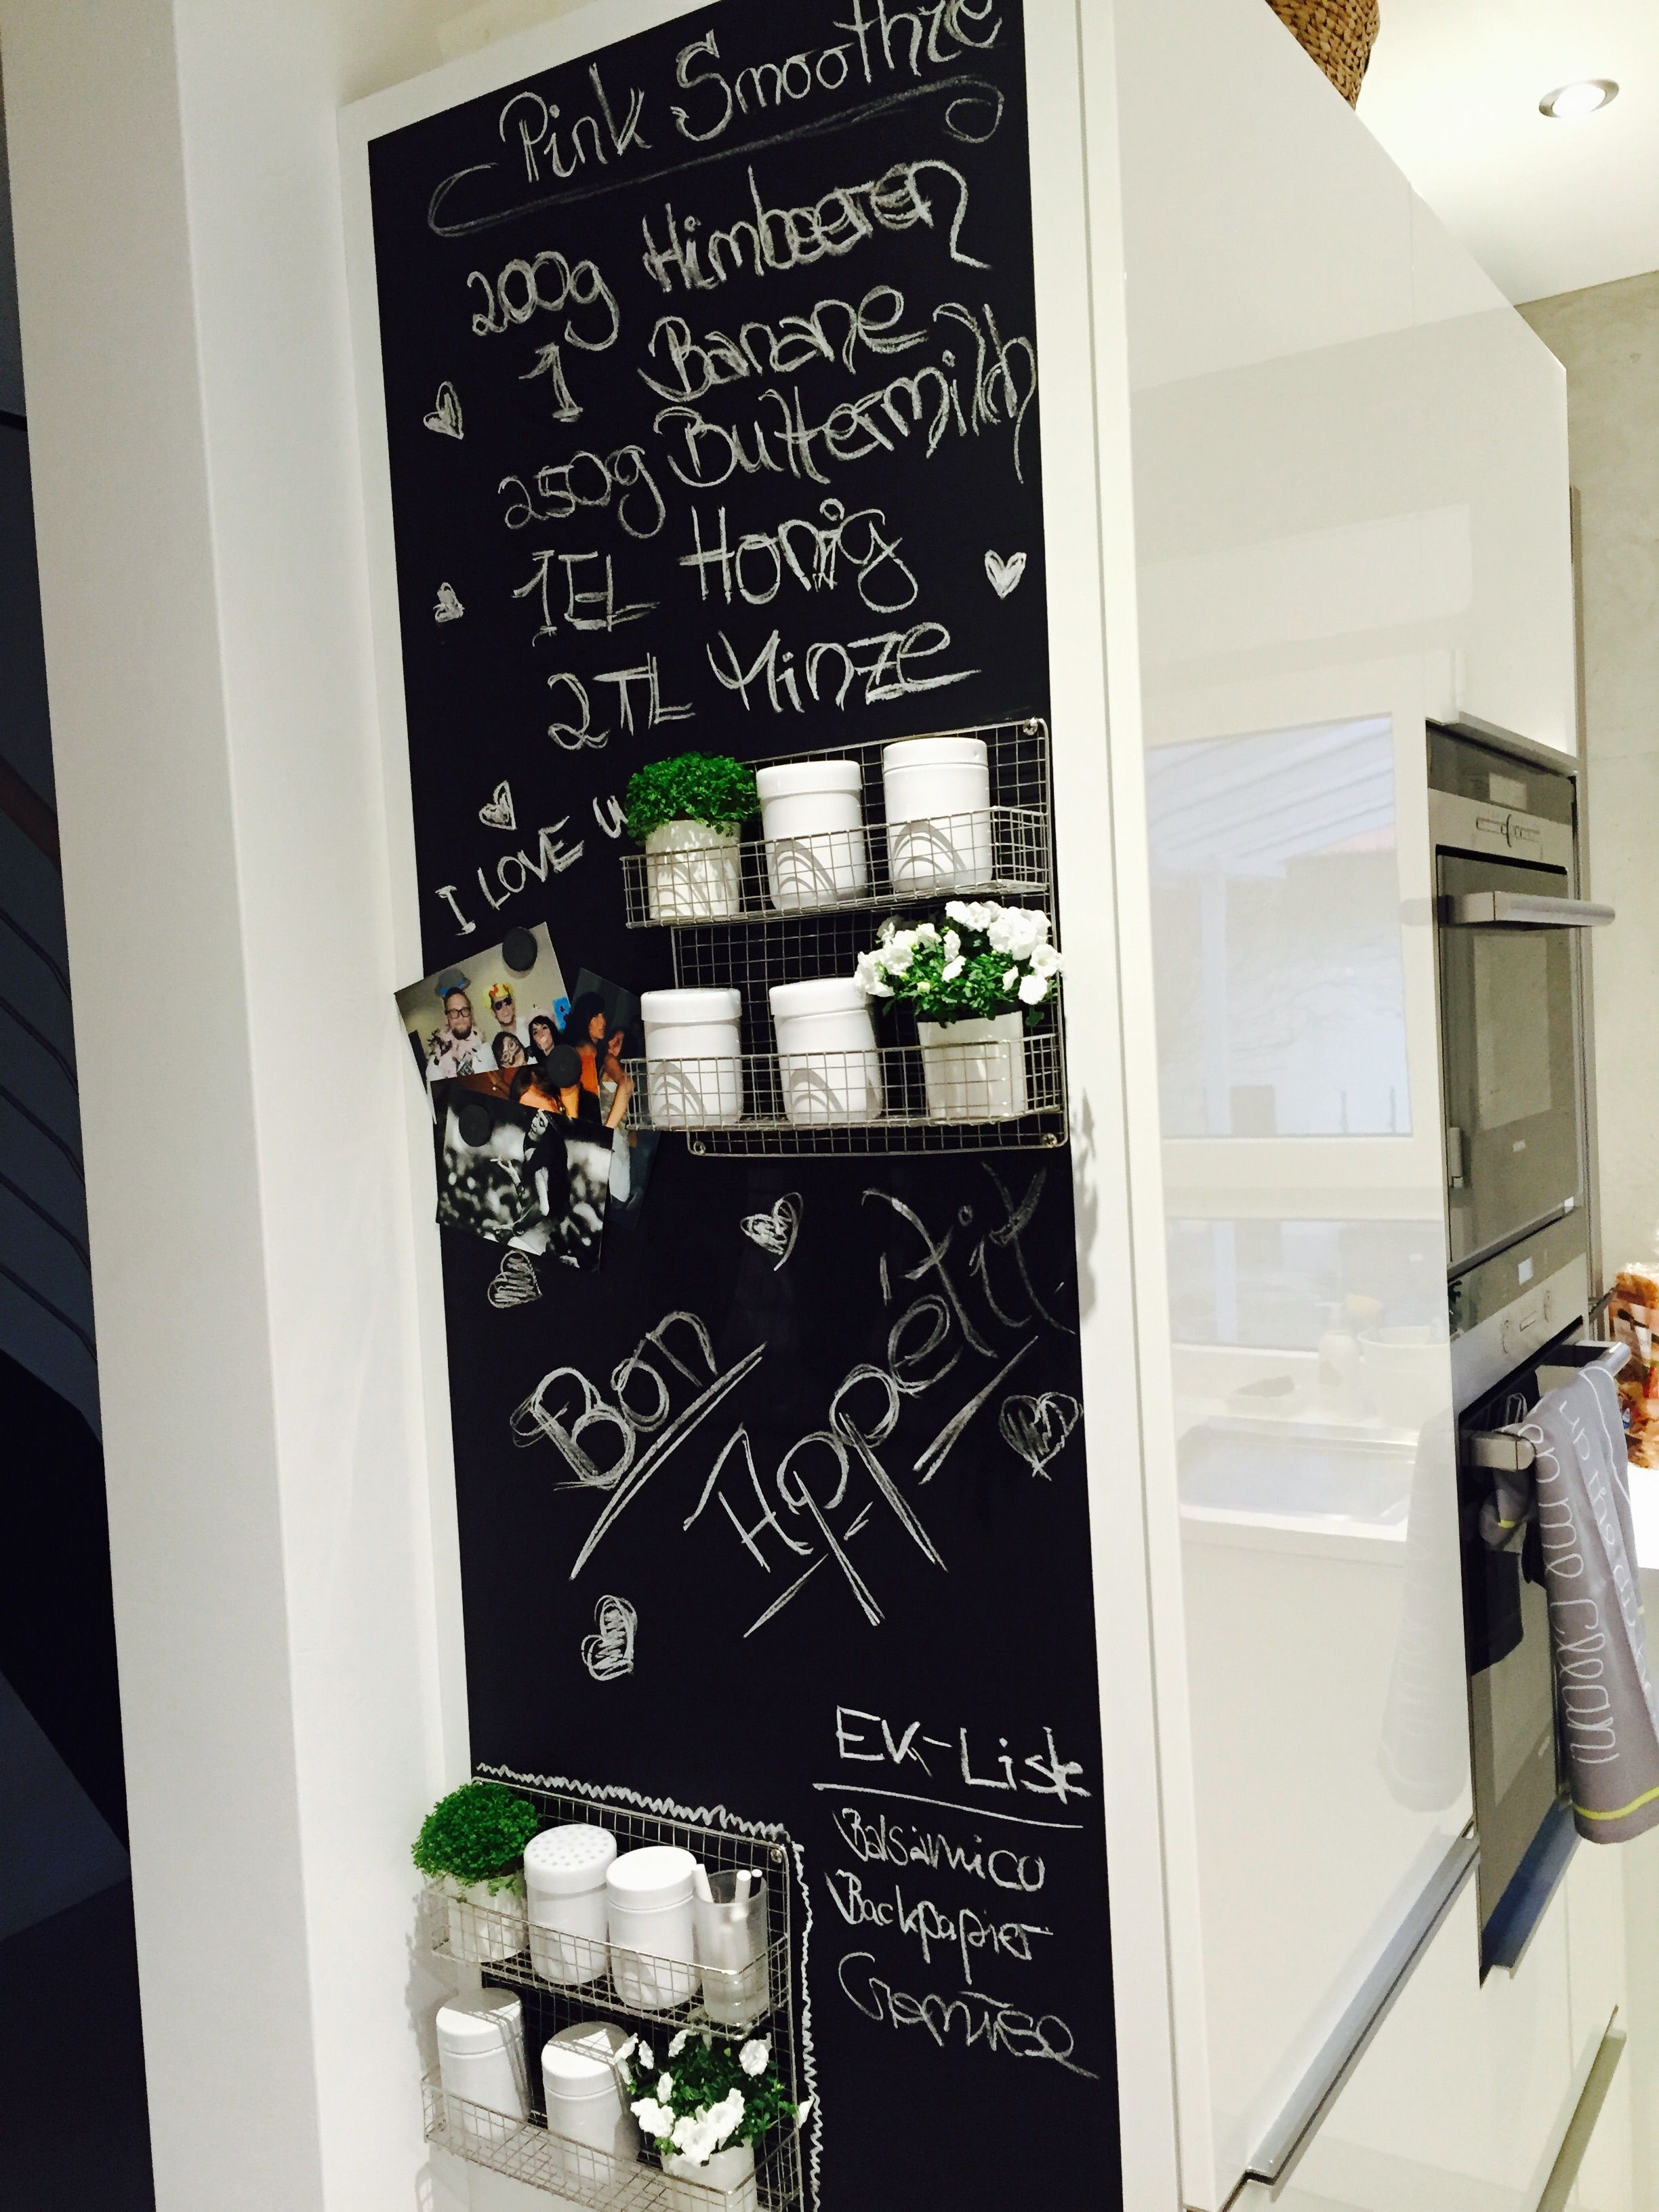 Pink Smoothie
200g Himbeeren
1 Banane
250g Buttermilch
1EL Honig
2TL Minze
I LOVE u
Bon
Appetit
EK-Liste
Balsamico
Backpapier
Gemüse